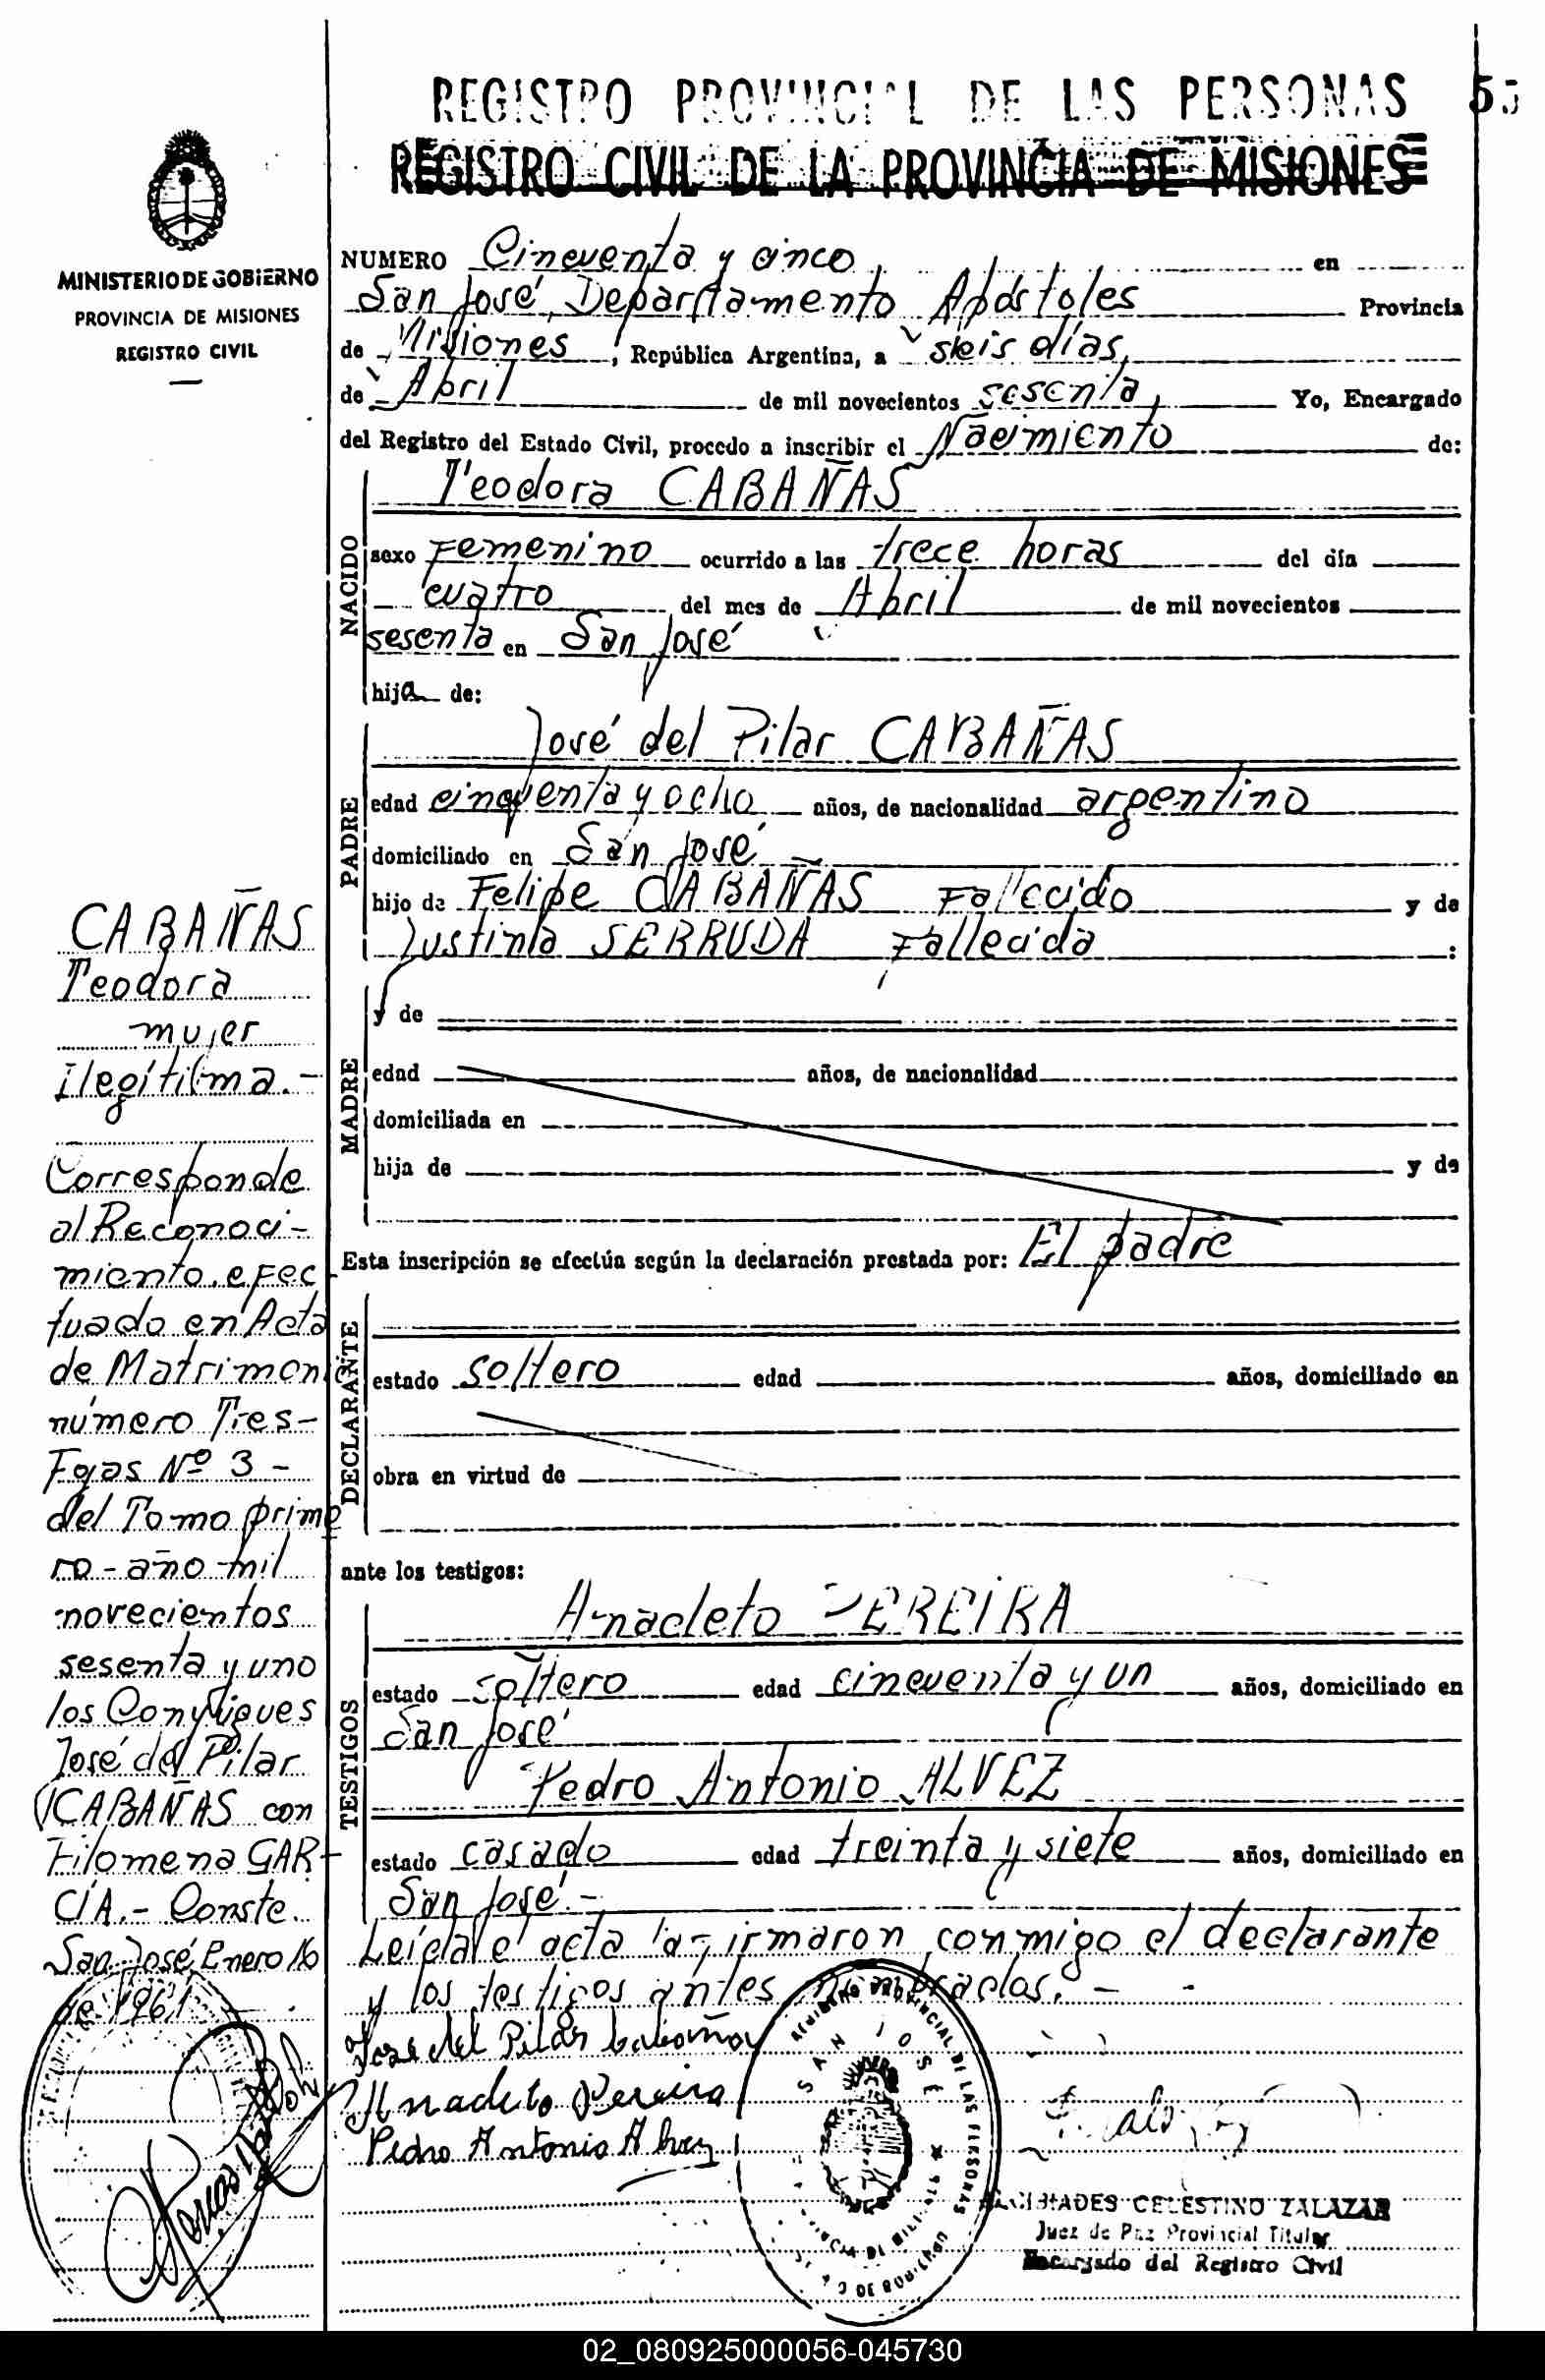 REGISTRO PROVINCIAL DE LAS PERSONAS
REGISTRO CIVIL DE LA PROVINCIA DE MISIONES
MINISTERIO DE GOBIERNO
PROVINCIA DE MISIONES
REGISTRO CIVIL
NUMERO Cincuenta y cinco, en
San José, Departamento Apóstoles Provincia
de Misiones, República Argentina, a seis días,
de Abril de mil novecientos sesenta, Yo, Encargado
del Registro del Estado Civil, procedo a inscribir el Nacimiento de:
NACIDO
Teodora CABAÑAS
sexo Femenino ocurrido a las trece horas del día
cuatro del mes de Abril de mil novecientos
sesenta en San José
hija de:
PADRE
José del Pilar CABAÑAS
edad cincuenta y ocho años, de nacionalidad argentino
domiciliado en San José
hijo de Felipe CABAÑAS Fallecido y de
Justina SERRUDA Fallecida :
MADRE
y de
edad años, de nacionalidad
domiciliada en
hija de y de
Esta inscripción se efectúa según la declaración prestada por: El padre
DECLARANTE
estado soltero edad años, domiciliado en
obra en virtud de
ante los testigos:
TESTIGOS
Anacleto PEREIRA
estado soltero edad cincuenta y un años, domiciliado en
San José
Pedro Antonio ALVEZ
estado casado edad treinta y siete años, domiciliado en
San José.-
Leída el acta la firmaron conmigo el declarante
y los testigos antes nombrados.-
Jose del Pilar Cabañas
Anacleto Pereira
Pedro Antonio Alvez
REGISTRO PROVINCIAL DE LAS PERSONAS
SAN JOSÉ
ALCIBIADES CELESTINO ZALAZAR
Juez de Paz Provincial Titular
Encargado del Registro Civil
CABAÑAS
Teodora
mujer
Ilegítima.-
Corresponde
al Reconoci-
miento efec
tuado en Acta
de Matrimonio
número Tres-
Fojas Nº 3 -
del Tomo prime
ro - año mil
novecientos
sesenta y uno
los Conyugues
José del Pilar
CABAÑAS con
Filomena GAR-
CÍA.- Conste.
San José, Enero 16
de 1961
02_080925000056-045730